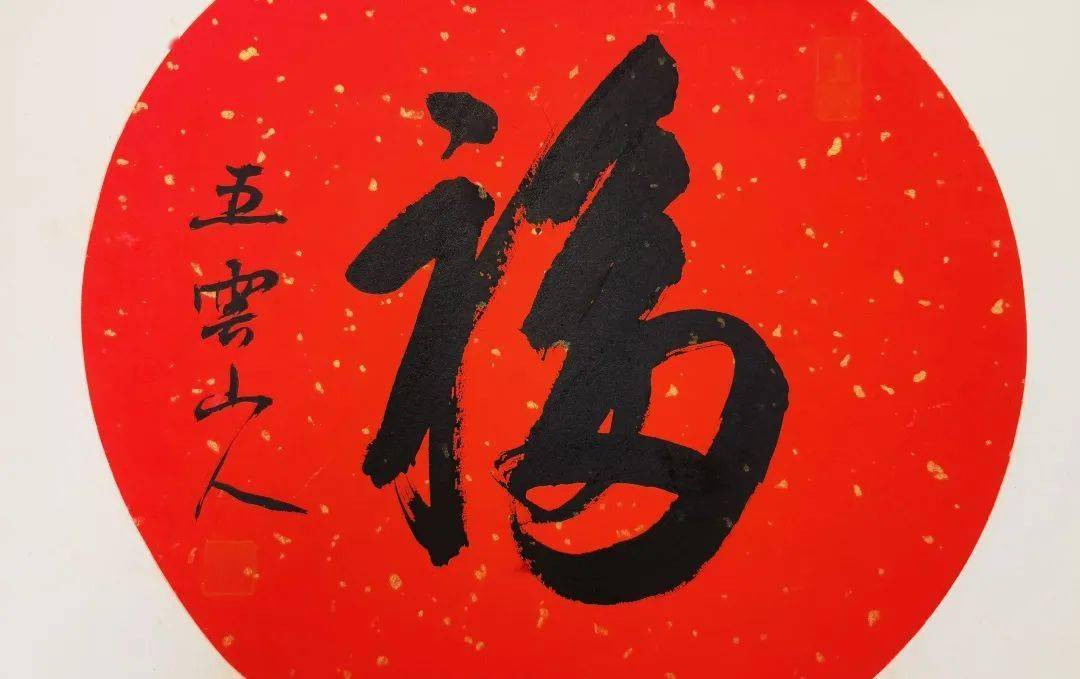 福
五雲山人